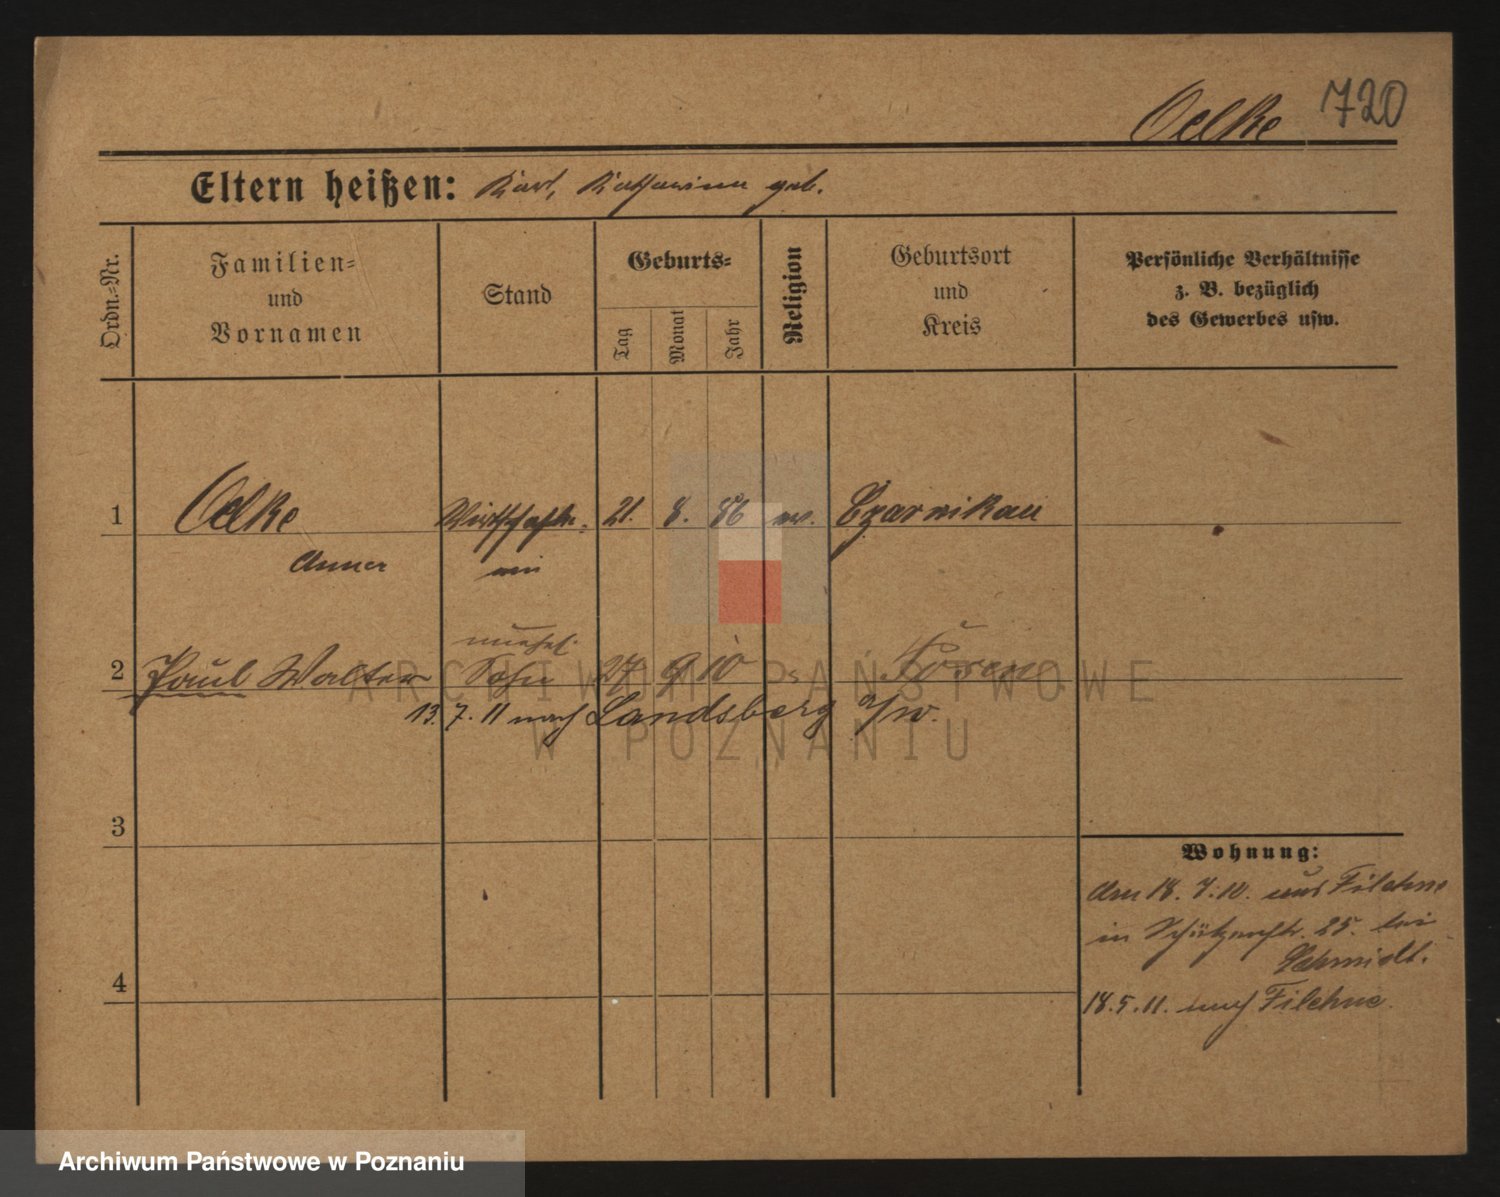 Oelke 720
Eltern heißen: Karl, Katharina geb.
Ordn.=Nr.
Familien=
und
Vornamen
Stand
Geburts=
Tag
Monat
Jahr
Religion
Geburtsort
und
Kreis
Persönliche Verhältnisse
z. B. bezüglich
des Gewerbes usw.
1 Oelke Wirtschafte- 21. 8. 86 ev. Czarnikau
Anna rin
unehel.
2 Paul Walter Sohn 27 9 10 Posen
13. 7. 11 nach Landsberg a/W.
3
4
Wohnung:
Am 18. 7. 10. aus Filehne
in Schützenstr. 25. bei
Schmidt.
18. 5. 11. nach Filehne.
ARCHIWUM PAŃSTWOWE
W POZNANIU
Archiwum Państwowe w Poznaniu